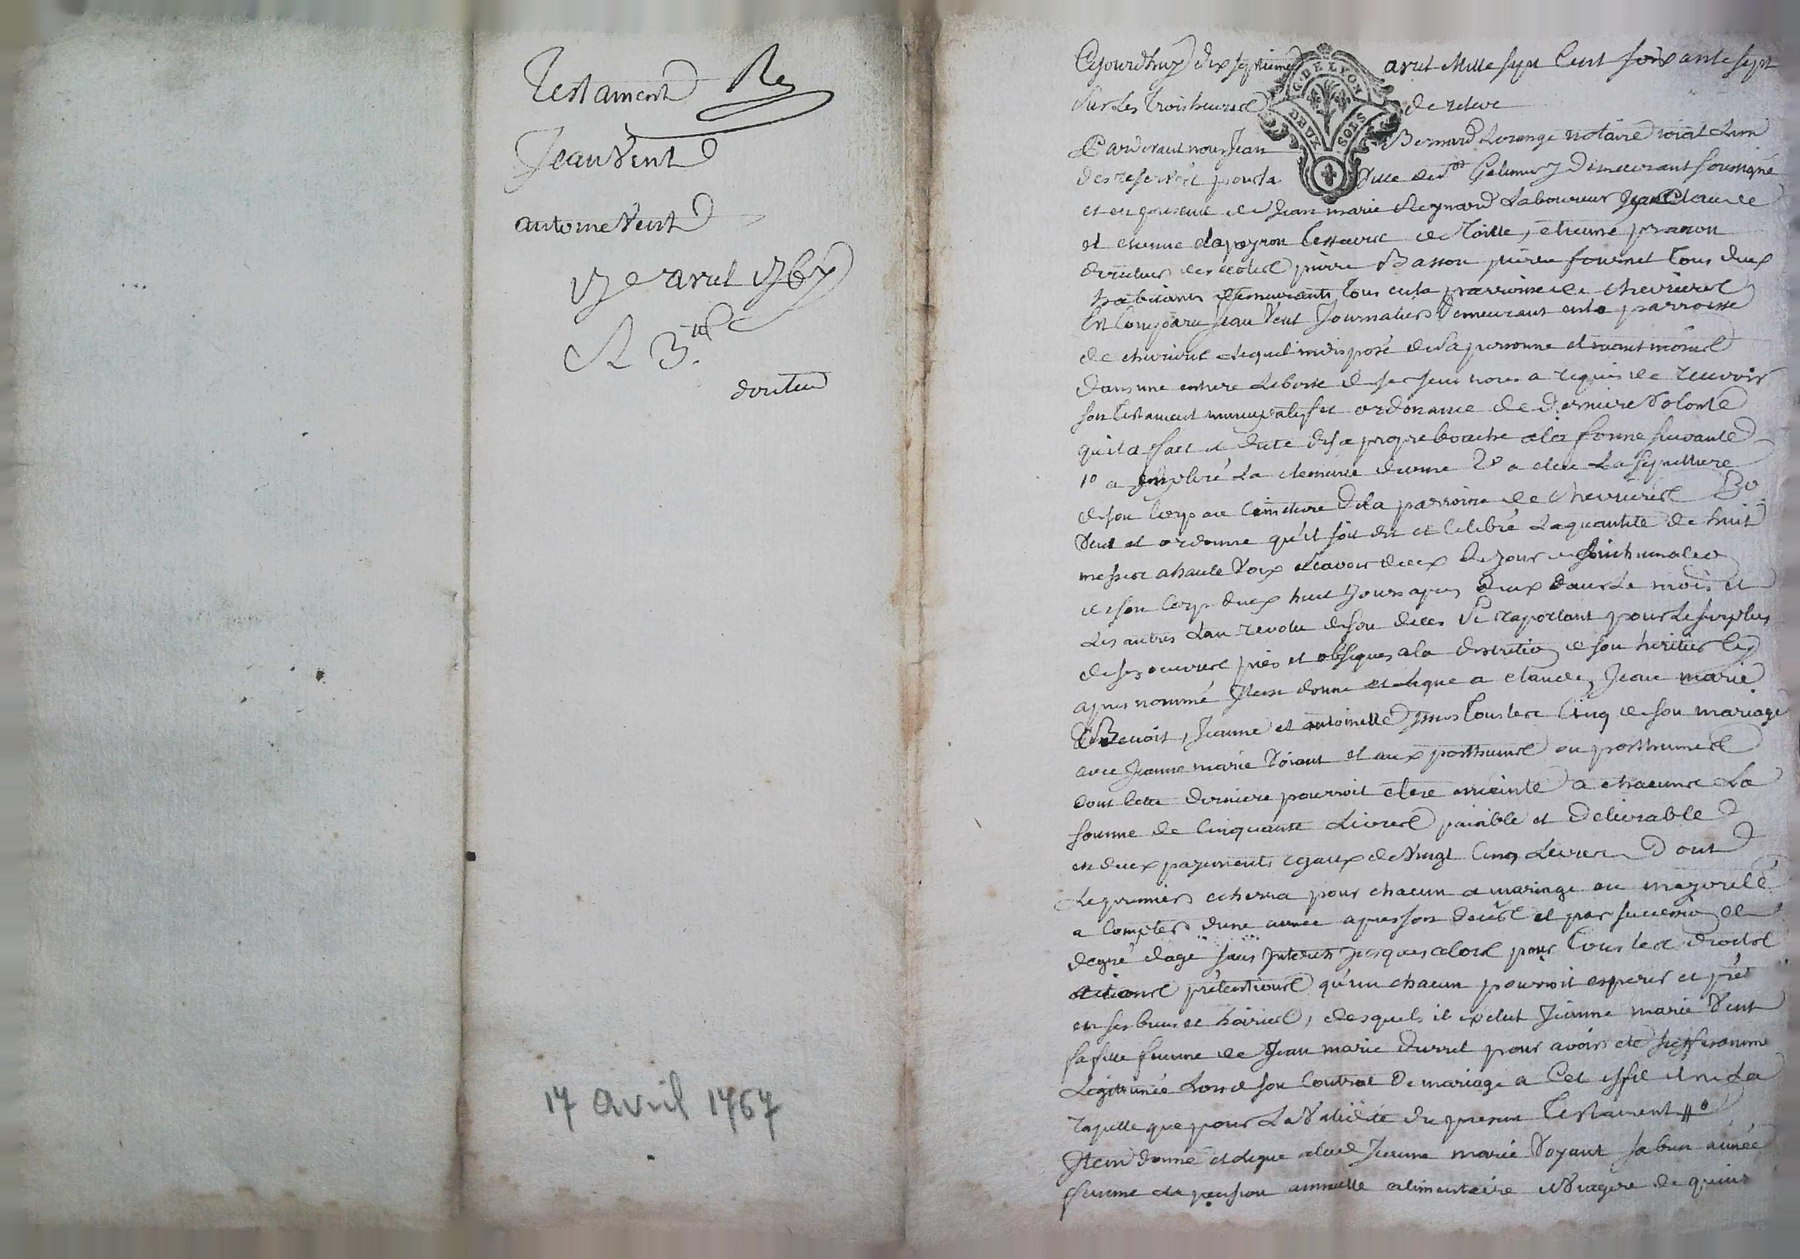 Testament
Jean Vent
antoine Vent
17e avril 1767
R 3.
17 avril 1767
Cejourdhuy dix septieme avril Mille sept Cent soixante sept
sur Les Trois heures de releve
Pardevant nous Jean Bernard Lorange notaire roial Lun
des reservés pour la Ville de St Galmier y demeurant soussigné
et en presence de Jean marie Reynard Laboureur Jean Claude
et etienne Lapeyron de , etienne
pierre Basson pierre fournel Tous deux
habitants demeurants Tous en la parroisse de chevrieres
Est Comparu Jean Vent Journalier Demeurant en la parroisse
de chevrieres Lequel indisposé de sa personne et neant moins
dans une entiere Liberté de ses sens nous a requis de recevoir
son Testament nuncupatif et ordonance de Derniere Volonté
qu'il a fait et dicté de sa propre bouche a la forme suivante
1º a imploré La clemence divine 2º a elu La sepulture
de son Corps au Cimetiere de la parroisse de chevrieres 3º
Veut et ordonne qu'il soit dit et Celebré La quantité de huit
messes a haute Voix scavoir deux Le Jour de Linhumation
de son Corps deux huit Jours apres deux dans Le mois et
Les autres Lan revolu de son deces Se raportant pour Le surplus
de ses oeuvres pies et obseques a la discretion de son heritier Cy
apres nommé Item donne et Legue a claude, Jean marie
Benoit, Jeanne et antoinette Tous Les Cinq de son mariage
avec Jeanne marie Voiant et aux posthumes ou posthumes
dont Cette derniere pourroit etere enceinte a chacuns La
somme de Cinquante Livres paiable et Delivrable
en deux payements egaux de Vingt Cinq Livres Dont
Le premier echerra pour chacun a mariage ou majorité
a Compter d'une année apres son decès et par succession de
degré dage sans Interets Jusques alors pour Tous Les droits
actions pretentions qu'un chacun pourroit esperer et prét
en ses biens et hoiries, desquels il exclut Jeanne marie Vent
sa fille femme de Jean marie pour avoir eté suffisamment
Légitimée Lors de son Contrat De mariage a Cet effet et ne La
rapelle que pour La Validité du present Testament
Item donne et Legue a lad Jeanne marie Voyant sa bien aimée
femme La pension annuelle alimentaire et Viagere de quinze